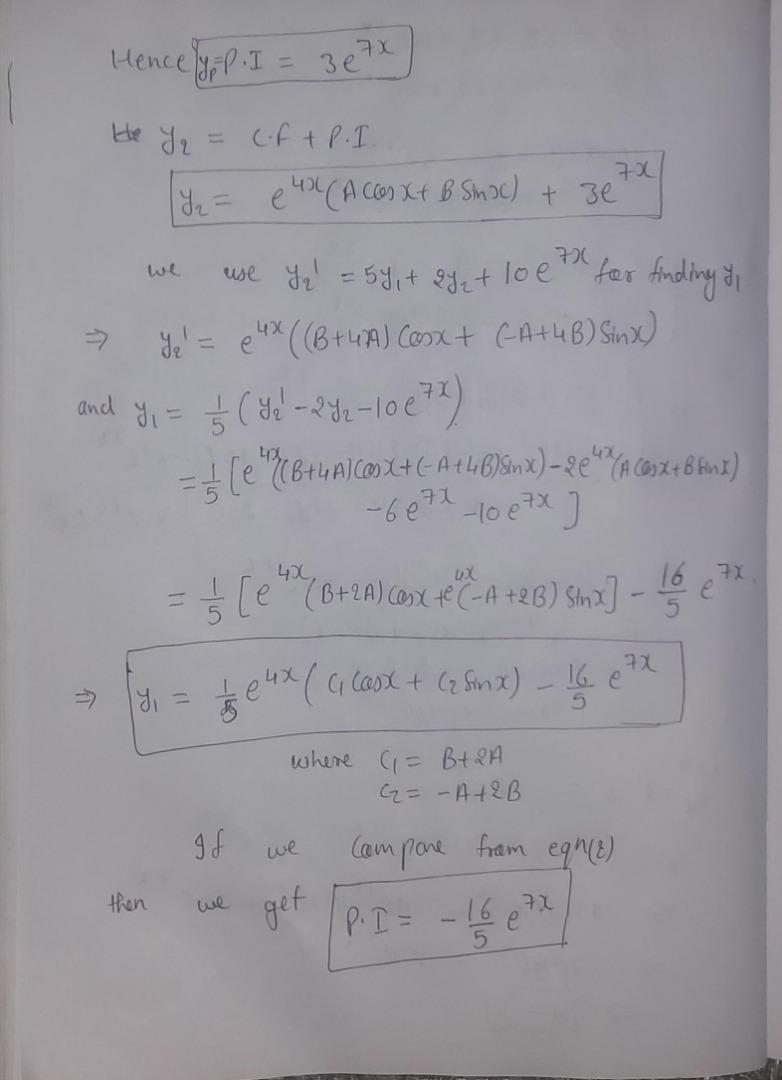 Hence y_p = P.I = 3e^{7x}
y₂ = C.f + P.I.
y₂ = e^{4x}(A cos x + B Sin x) + 3e^{7x}
we use y₂' = 5y₁ + 2y₂ + 10e^{7x} for finding y₁
⇒ y₂' = e^{4x}((B+4A) Cos x + (-A+4B) Sin x)
and y₁ = 1/5 (y₂' - 2y₂ - 10e^{7x})
= 1/5 [e^{4x}((B+4A) Cos x + (-A+4B) Sin x) - 2e^{4x}(A Cos x + B Sin x)
- 6e^{7x} - 10e^{7x}]
= 1/5 [e^{4x}(B+2A) Cos x + e^{4x}(-A+2B) Sin x] - 16/5 e^{7x}.
⇒ y₁ = 1/5 e^{4x}(C₁ Cos x + C₂ Sin x) - 16/5 e^{7x}
where C₁ = B+2A
C₂ = -A+2B
If we Compare from eqn(2)
then we get P.I = - 16/5 e^{7x}